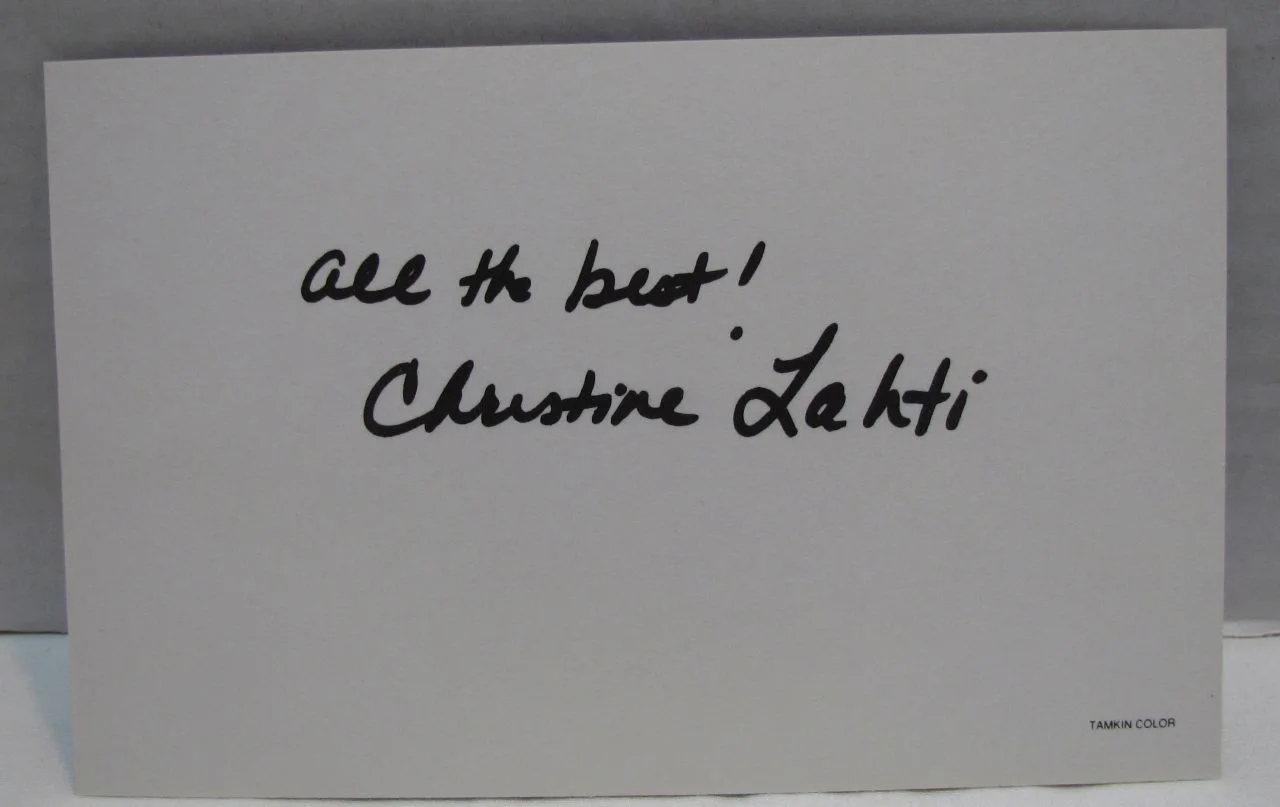 all the best!
Christine Lahti
TAMKIN COLOR